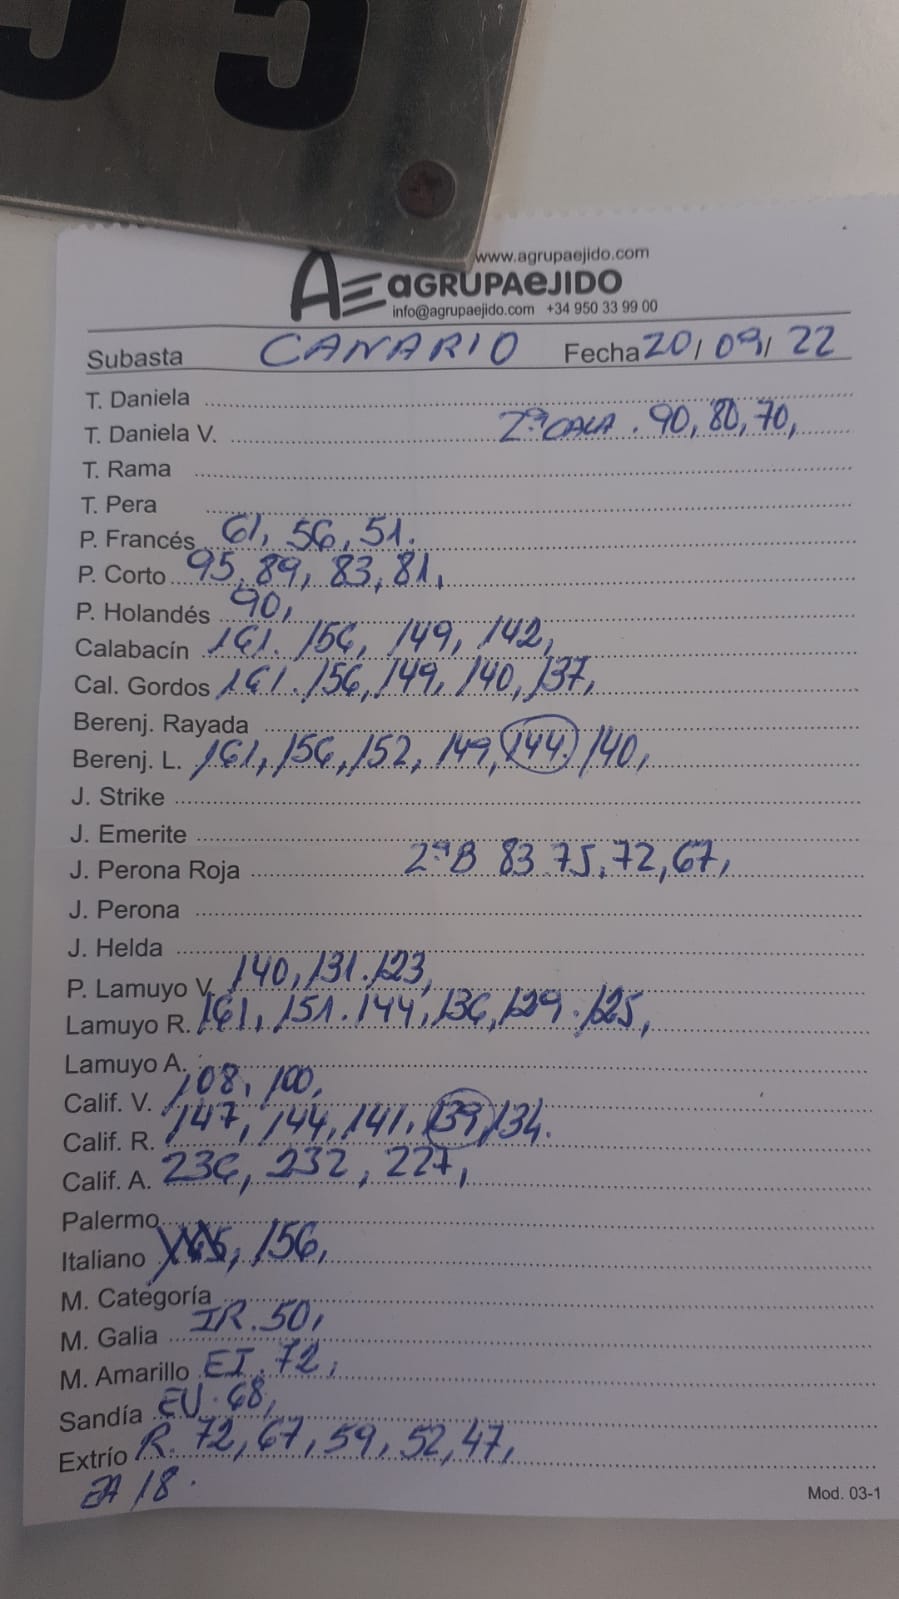 55
www.agrupaejido.com
AE aGRUPAeJIDO
info@agrupaejido.com +34 950 33 99 00
Subasta CANARIO Fecha 20/09/22
T. Daniela
T. Daniela V. 2ª CALA. 90, 80, 70,
T. Rama
T. Pera
P. Francés 61, 56, 51.
P. Corto 95, 89, 83, 81,
P. Holandés 90,
Calabacín 161. 156, 149, 142,
Cal. Gordos 161. 156, 149, 140, 137,
Berenj. Rayada
Berenj. L. 161, 156, 152, 149, 144. 140,
J. Strike
J. Emerite
J. Perona Roja 2ª B 83. 75, 72, 67,
J. Perona
J. Helda
P. Lamuyo V. 140, 131. 123,
Lamuyo R. 161, 151. 144, 136, 129. 125,
Lamuyo A.
Calif. V. 108, 100,
Calif. R. 147, 144, 141, 139, 134.
Calif. A. 236, 232, 227,
Palermo
Italiano 165, 156,
M. Categoría
M. Galia IR. 50,
M. Amarillo EI. 72,
Sandía EV. 68,
Extrío R. 72, 67, 59, 52, 47,
EA 18.
Mod. 03-1